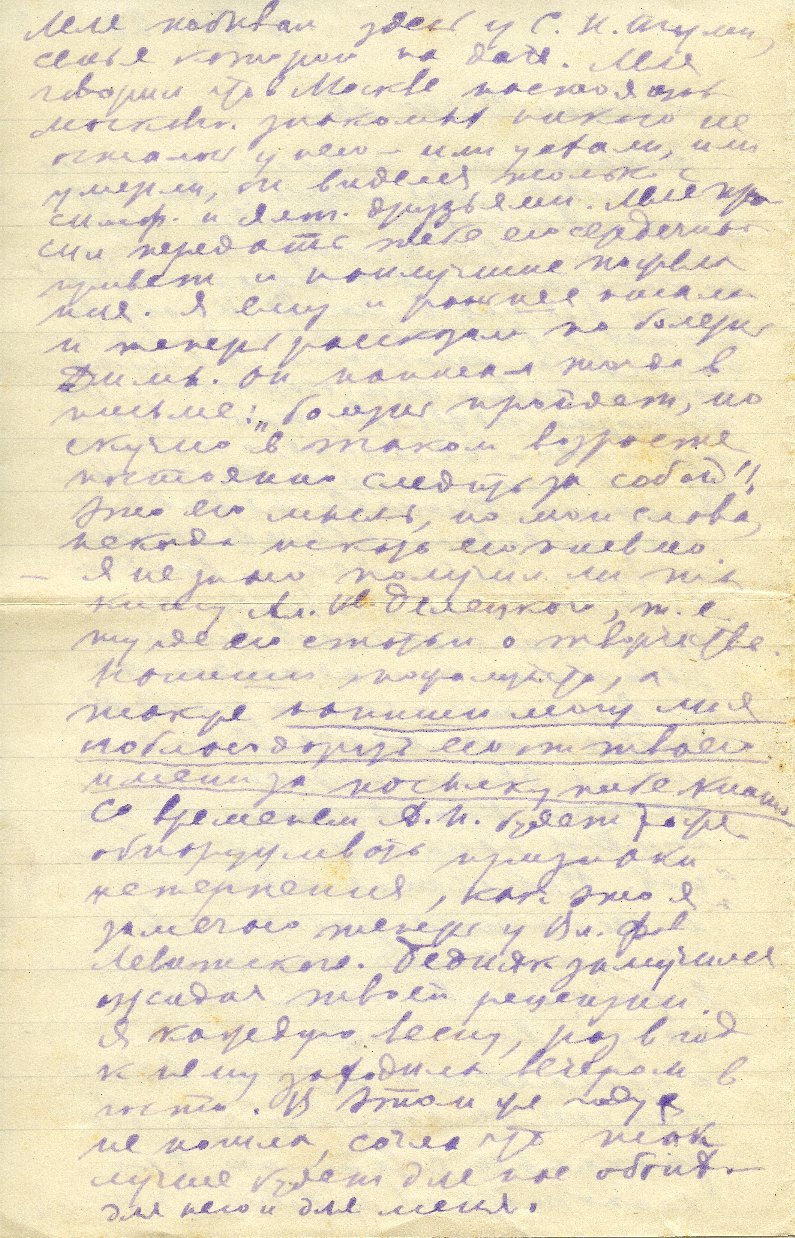 побывал здесь у С. Н.
семья которой на даче.
говорил что в Москве настоящих
московс. знакомых никого не
осталось у него – или уехали, или
умерли, он виделся только с
симф. и ялт. друзьями. про-
сил передать тебе его сердечный
привет и наилучшие пожела
ния. Я ему и раньше писала
и теперь рассказала по болезнь
он написал тогда в
письме: „болезнь пройдет, но
скучно в таком возрасте
постоянно следить за собой"!
Это его мысль, но мои слова,
некогда искать его письмо.
– Я не знаю получил ли ты
книгу Ал. Ив. Белецкого, т. е.
его статьи о творчестве.
Напиши пожалуйста, а
также напиши могу ли я
поблагодарить его от твоего
имени за посылку тебе книги
Со временем А. И. будет тоже
обнаруживать признаки
нетерпения, как это я
замечаю теперь у Вл. Фед
Левитского. Бедняк замучился
ожидая твоей рецензии.
Я каждую весну, раз в год
к нему заходила вечером в
гости. В этом же году я
не пошла, сочла что так
лучше будет для нас обоих –
для него и для меня.